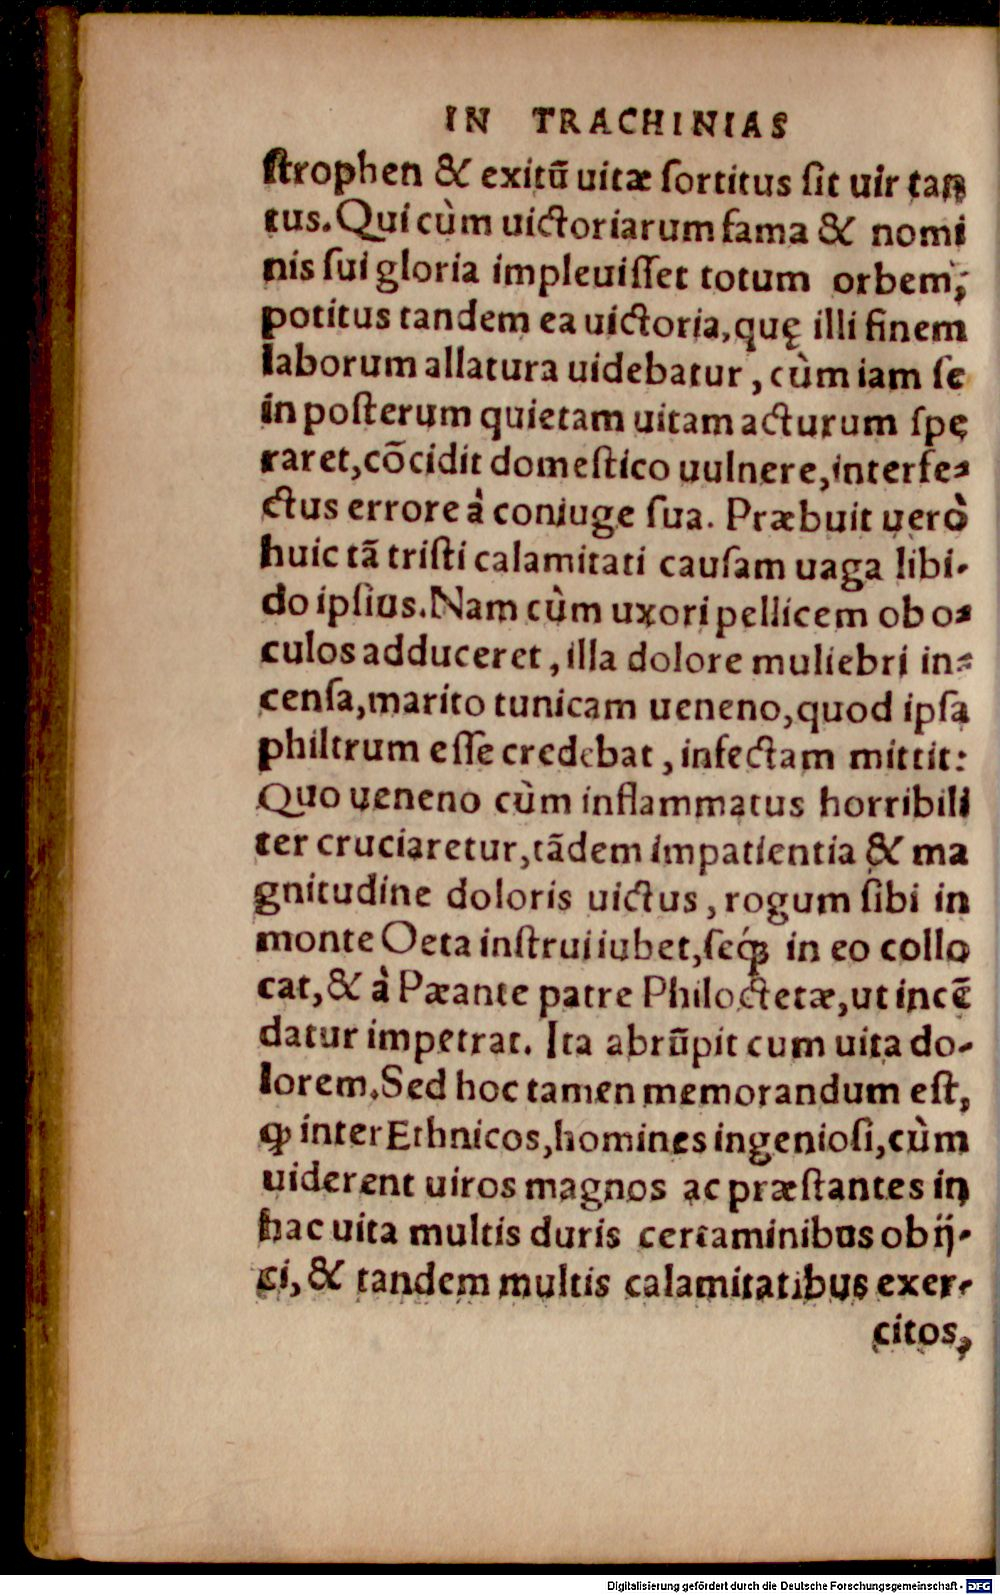 IN TRACHINIAS
ſtrophen & exitũ uitæ ſortitus ſit uir tan
tus. Qui cùm uictoriarum fama & nomi
nis ſui gloria impleuiſſet totum orbem,
potitus tandem ea uictoria, quę illi finem
laborum allatura uidebatur, cùm iam ſe
in poſterum quietam uitam acturum ſpe
raret, cõcidit domeſtico uulnere, interfe-
ctus errore à coniuge ſua. Præbuit uerò
huic tã triſti calamitati cauſam uaga libi-
do ipſius. Nam cùm uxori pellicem ob o-
culos adduceret, illa dolore muliebri in-
cenſa, marito tunicam ueneno, quod ipſa
philtrum eſſe credebat, infectam mittit:
Quo ueneno cùm inflammatus horribili
ter cruciaretur, tãdem impatientia & ma
gnitudine doloris uictus, rogum ſibi in
monte Oeta inſtrui iubet, ſeq́ꝫ in eo collo
cat, & à Pæante patre Philoctetæ, ut incẽ
datur impetrat. Ita abrũpit cum uita do-
lorem. Sed hoc tamen memorandum eſt,
ꝙ inter Ethnicos, homines ingenioſi, cùm
uiderent uiros magnos ac præſtantes in
hac uita multis duris certaminibus obij-
ci, & tandem multis calamitatibus exer-
citos,
Digitalisierung gefördert durch die Deutsche Forschungsgemeinschaft - DFG